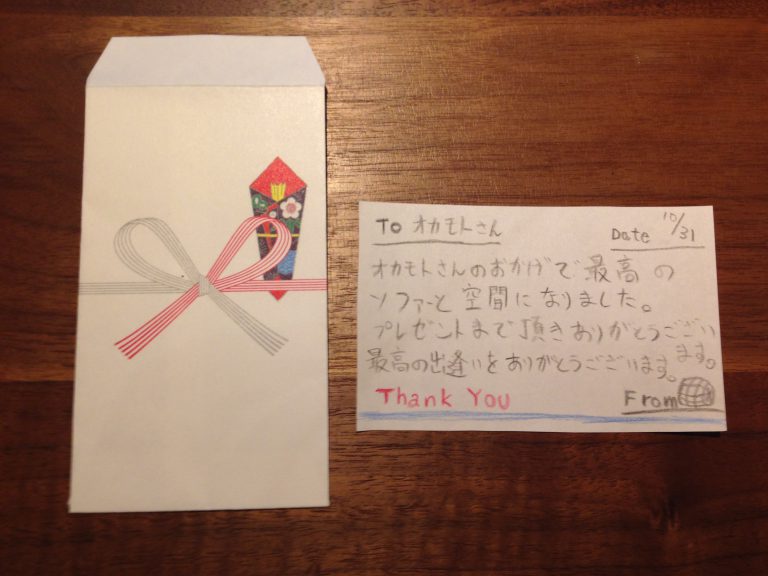 To オカモトさん
Date 10/31
オカモトさんのおかげで最高の
ソファーと空間になりました。
プレゼントまで頂きありがとうござい
ます。
最高の出逢いをありがとうございます。
Thank You
From